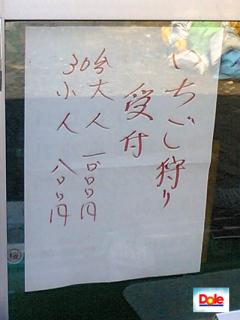 いちご狩り
受付
30分大人 一〇〇〇円
小人 八〇〇円
Dole